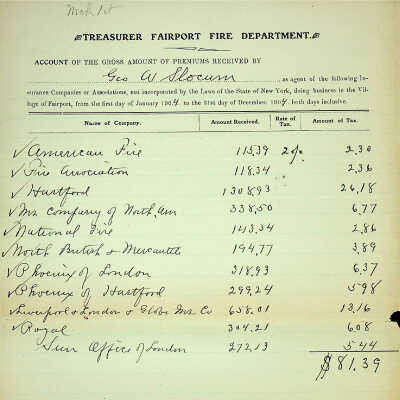 Mch 1st
TREASURER FAIRPORT FIRE DEPARTMENT.
ACCOUNT OF THE GROSS AMOUNT OF PREMIUMS RECEIVED BY
Geo A Slocum, as agent of the following In-
surance Companies or Associations, not incorporated by the Laws of the State of New York, doing business in the Vil-
lage of Fairport, from the first day of January 1904 to the 31st day of December, 1904, both days inclusive.
Name of Company. Amount Received. Rate of Tax. Amount of Tax.
✓ American Fire 115.39 2% 2.30
✓ Fire Association 118.34 " 2.36
✓ Hartford 1308.93 26.18
✓ Ins Company of North Am 338.50 6.77
✓ National Fire 143.34 2.86
✓ North British & Mercantile 194.77 3.89
✓ Phoenix of London 318.93 6.37
✓ Phoenix of Hartford 299.24 5.98
✓ Liverpool & London & Globe Ins Co 658.01 13.16
✓ Royal 304.21 608
Sun Office of London 272.13 5.44
$81.39